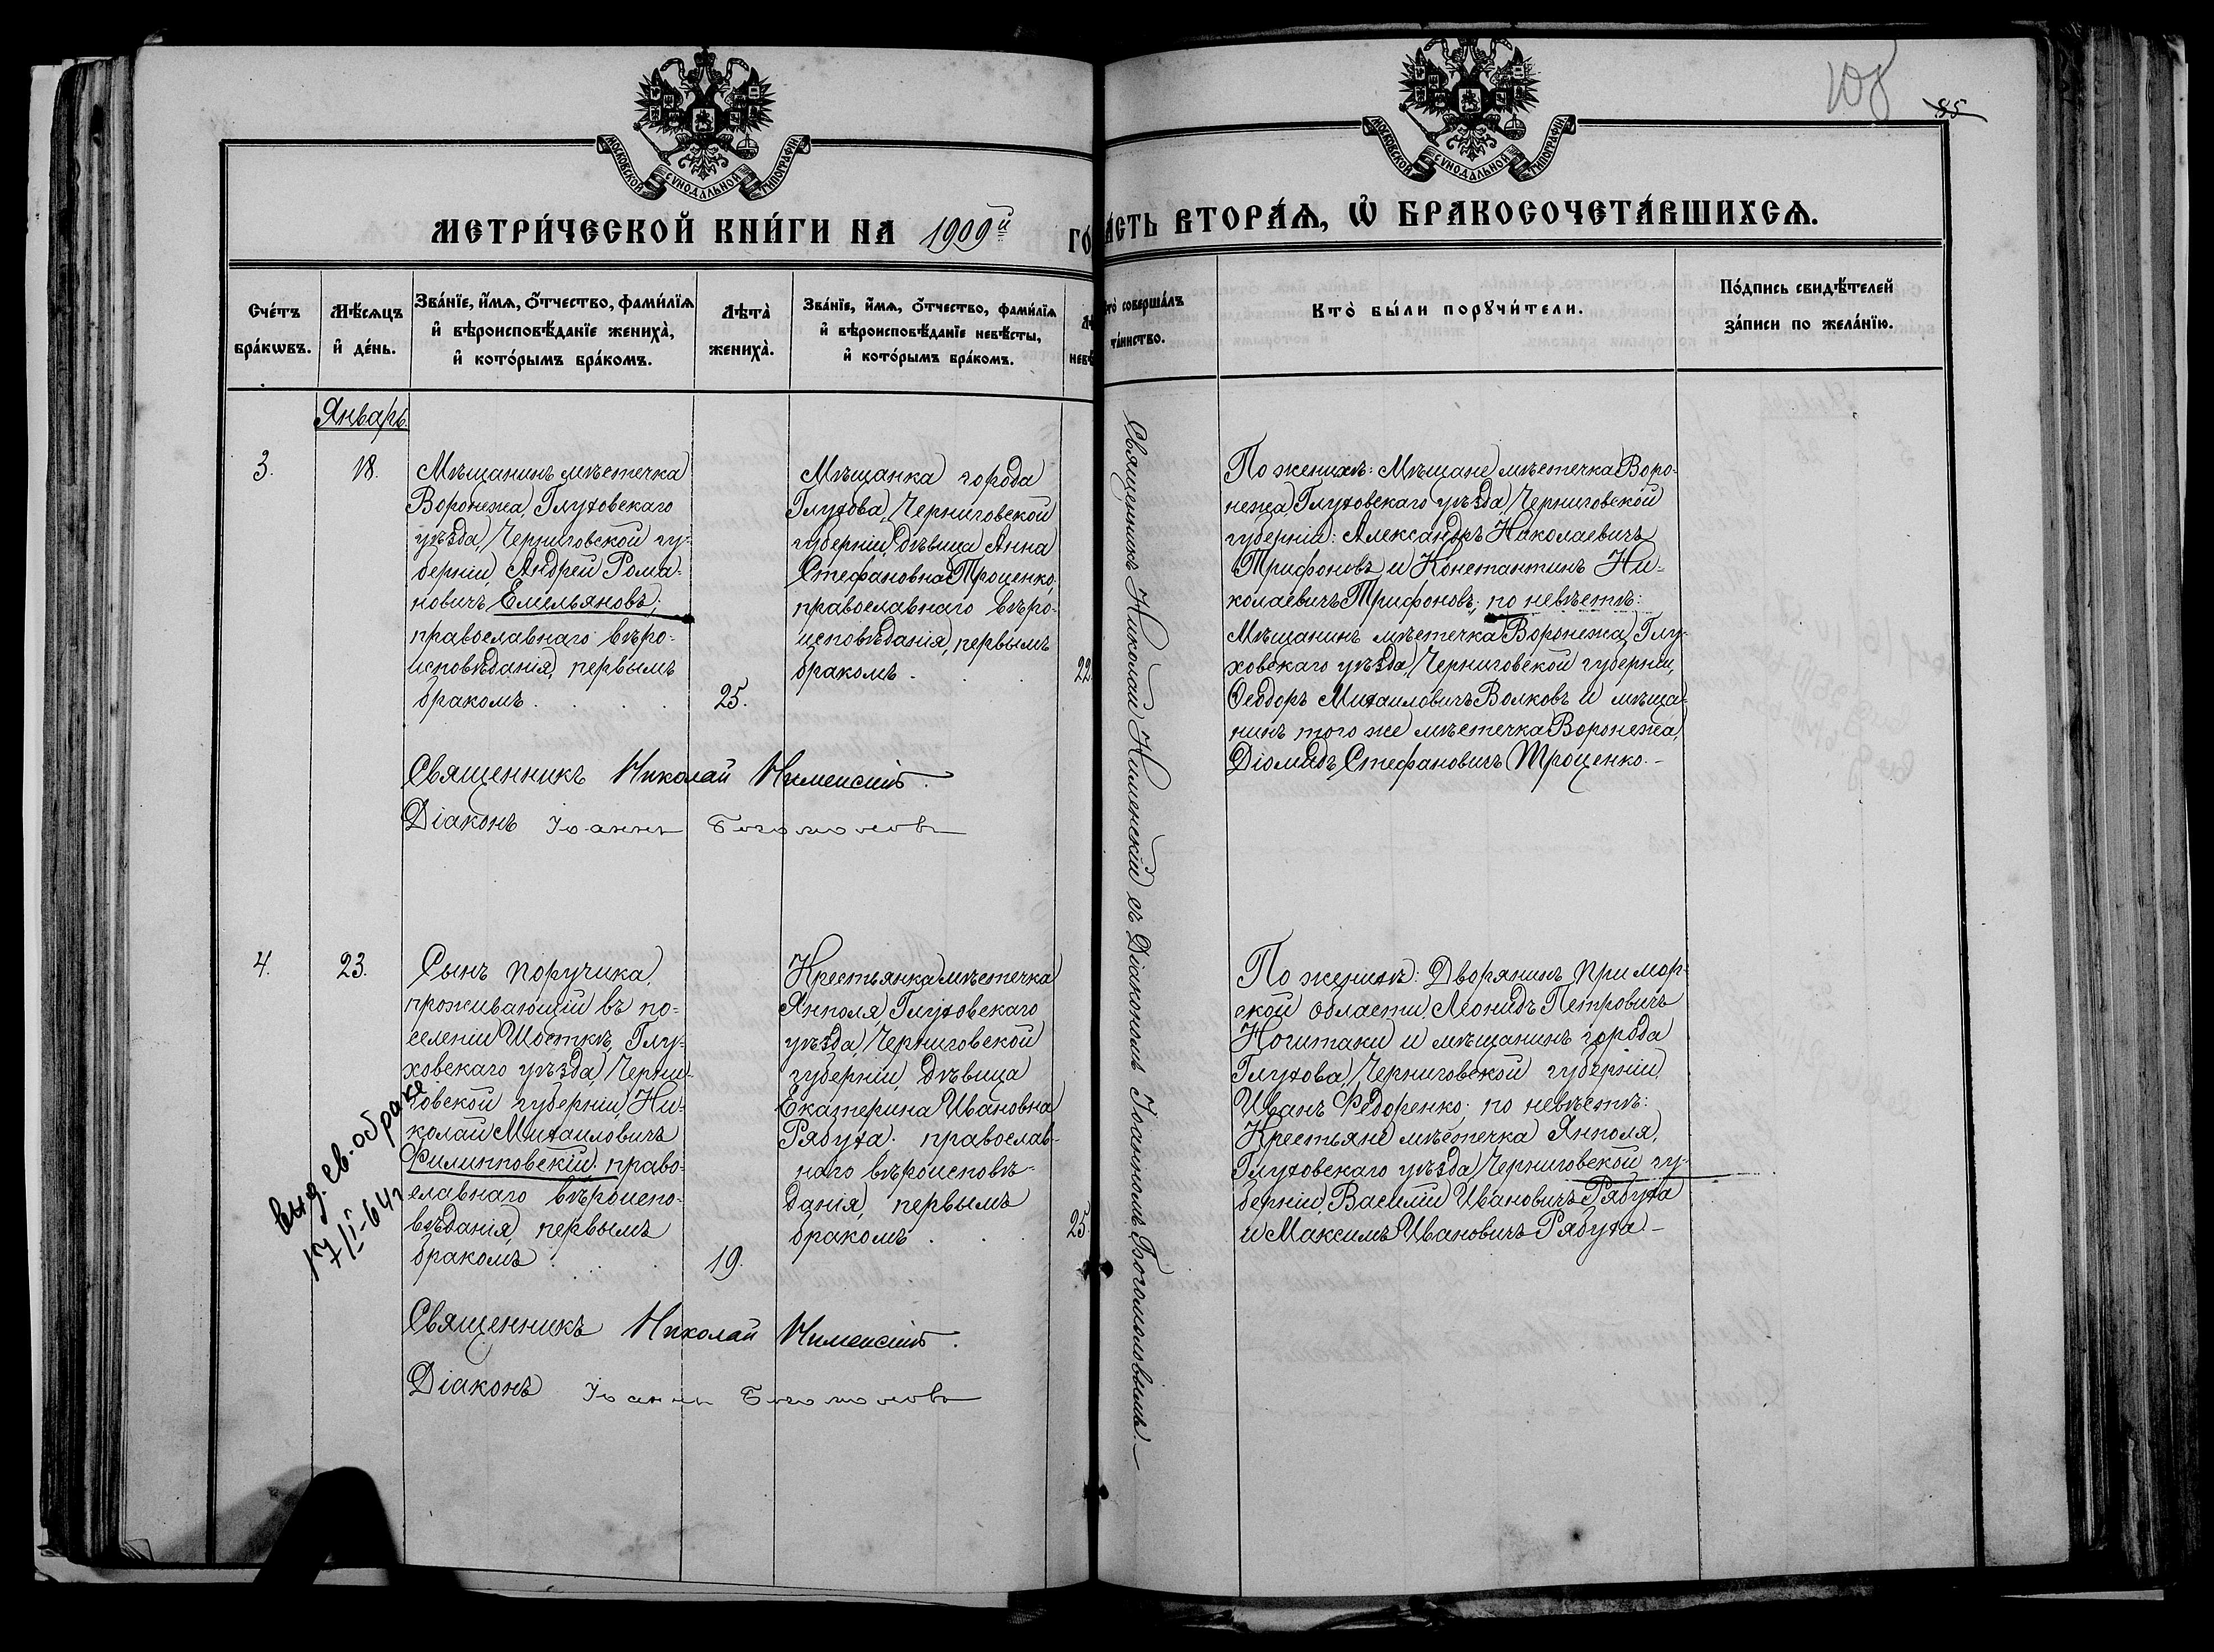 108
85
МОСКОВСКОЙ СѴНОДАЛЬНОЙ ТИПОГРАФІИ
МЕТРИ́ЧЕСКОЙ КНИ́ГИ НА 1909й ГО
Сче́тъ бра́кѡвъ.
Мѣ́сѧцъ и҆ де́нь.
Зва́нїе, и҆́мѧ, ѻ҆́тчество, фами́лїѧ
и҆ вѣроисповѣ́данїе жениха̀,
и҆ кото́рымъ бра́комъ.
Лѣта̀ жениха̀.
Зва́нїе, и҆́мѧ, ѻ҆́тчество, фами́лїѧ
и҆ вѣроисповѣ́данїе невѣ́сты,
и҆ кото́рымъ бра́комъ.
Январь
3.
18.
Мѣщанинъ мѣстечка
Воронежа, Глуховскаго
уѣзда, Черниговской гу-
берніи, Андрей Рома-
новичъ Емельяновъ;
православнаго вѣро-
исповѣданія, первымъ
бракомъ.
25.
Мѣщанка города
Глухова, Черниговской
губерніи, дѣвица Анна
Стефановна Троценко;
православнаго вѣро-
исповѣданія, первымъ
бракомъ.
22
Священникъ Николай Нименскій.
Діаконъ Іоаннъ Богомоловъ
4.
23.
Сынъ поручика,
проживающій въ по-
селеніи Шосткѣ, Глу-
ховскаго уѣзда, Черни-
говской губерніи, Ни-
колай Михаиловичъ
Филипповскій; право-
славнаго вѣроиспо-
вѣданія, первымъ
бракомъ.
19.
Крестьянка мѣстечка
Янполя, Глуховскаго
уѣзда, Черниговской
губерніи, дѣвица
Екатерина Ивановна
Рябуха; православ-
наго вѣроисповѣ-
данія, первымъ
бракомъ.
25
выд. св. о браке
17/I-64г
Священникъ Николай Нименскій.
Діаконъ Іоаннъ Богомоловъ
МОСКОВСКОЙ СѴНОДАЛЬНОЙ ТИПОГРАФІИ
А́СТЬ ВТОРА́Ѧ, Ѽ БРАКОСОЧЕТА́ВШИХСѦ.
то̀ соверша́лъ
та́инство.
Кто̀ бы́ли порꙋчи́тели.
По́дпись свидѣ́телей
за́писи по жела́нїю.
Священникъ Николай Нименскій съ Діакономъ Іоанномъ Богомоловымъ.
По женихѣ: Мѣщане мѣстечка Воро-
нежа, Глуховскаго уѣзда, Черниговской
губерніи: Александръ Николаевичъ
Трифоновъ и Константинъ Ни-
колаевичъ Трифоновъ; по невѣстѣ:
Мѣщанинъ мѣстечка Воронежа, Глу-
ховскаго уѣзда, Черниговской губерніи,
Ѳеодоръ Михаиловичъ Волковъ и мѣща-
нинъ того же мѣстечка Воронежа,
Діомидъ Стефановичъ Троценко.
По женихѣ: Дворянинъ Примор-
ской области, Леонидъ Петровичъ
Ногитаки и мѣщанинъ города
Глухова, Черниговской губерніи,
Иванъ Федоренко; по невѣстѣ:
Крестьяне мѣстечка Янполя,
Глуховскаго уѣзда, Черниговской гу-
берніи, Василій Ивановичъ Рябуха
и Максимъ Ивановичъ Рябуха